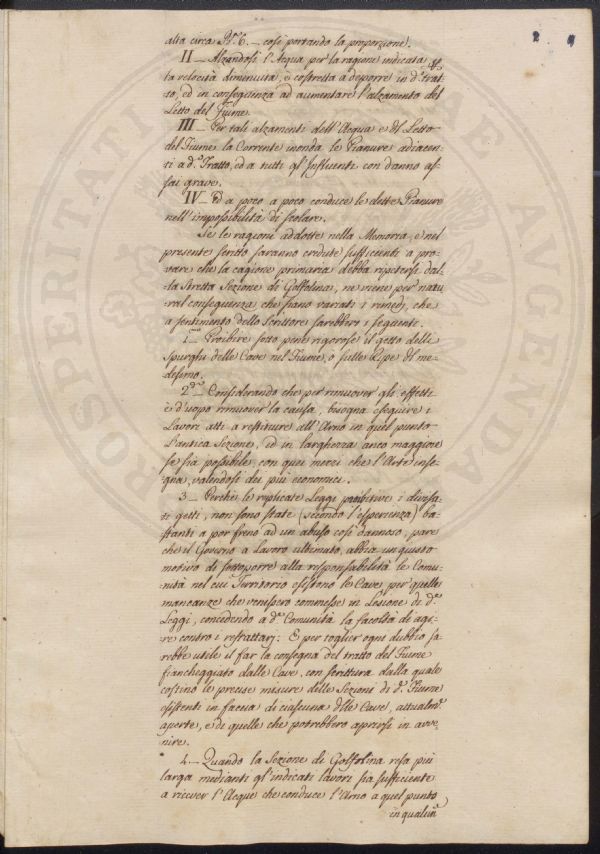 2.
alta circa Br.ª 6. _ così portando la proporzione.
II _ Alzandosi l'Acqua per la ragione indicata, e
la velocità diminuita, è costretta a deporre in d.º trat-
to, ed in conseguenza ad aumentare l'alzamento del
Letto del Fiume.
III _ Per tali alzamenti dell'Acqua e del Letto
del Fiume la Corrente inonda le Pianure adiacen-
ti a d.º Tratto, ed a tutti gl'Influenti con danno as-
sai grave.
IV _ Ed a poco a poco conduce le dette Pianure
nell'impossibilità di scolare.
Se le ragioni addotte nella Memoria, e nel
presente scritto saranno credute sufficienti a pro-
vare che la cagione primaria debba ripetersi dal-
la Stretta Sezione di Golfolina, ne viene per natu-
ral conseguenza che siano variati i rimedj, che
a sentimento dello Scrittore sarebbero i seguenti.
1.mo _ Proibire sotto pene rigorose il getto delli
Spurghi delle Cave nel Fiume, o sulle Ripe del me-
desimo.
2.do _ Considerando che per rimuover gli effetti
è d'uopo rimuover la causa, bisogna eseguire i
Lavori atti a restituire all'Arno in quel punto
l'antica Sezione, ed in larghezza anco maggiore
se sia possibile, con quei mezzi che l'Arte inse-
gna, valendosi dei più economici.
3 _ Perchè le replicate Leggi proibitive i divisa-
ti getti, non sono state (secondo l'esperienza) ba-
stanti a por freno ad un abuso così dannoso, pare
che il Governo a lavoro ultimato, abbia un giusto
motivo di sottoporre alla risponsabilità le Comu-
nità nel cui Territorio esistono le Cave per quelle
mancanze che venissero commesse in Lesione di d.e
Leggi, concedendo a d.e Comunità la facoltà di agi-
re contro i refrattarj: E per toglier ogni dubbio sa-
rebbe utile il far la consegna del tratto del Fiume
fiancheggiato dalle Cave, con scrittura dalla quale
costino le precise misure delle Sezioni di d.º Fiume
esistenti in faccia di ciascuna delle Cave, attualm.e
aperte, e di quelle che potrebbero aprirsi in avve-
nire.
4 _ Quando la Sezione di Golfolina resa più
larga medianti gl'indicati lavori sia sufficiente
a ricever l'Acque che conduce l'Arno a quel punto
in qualun-